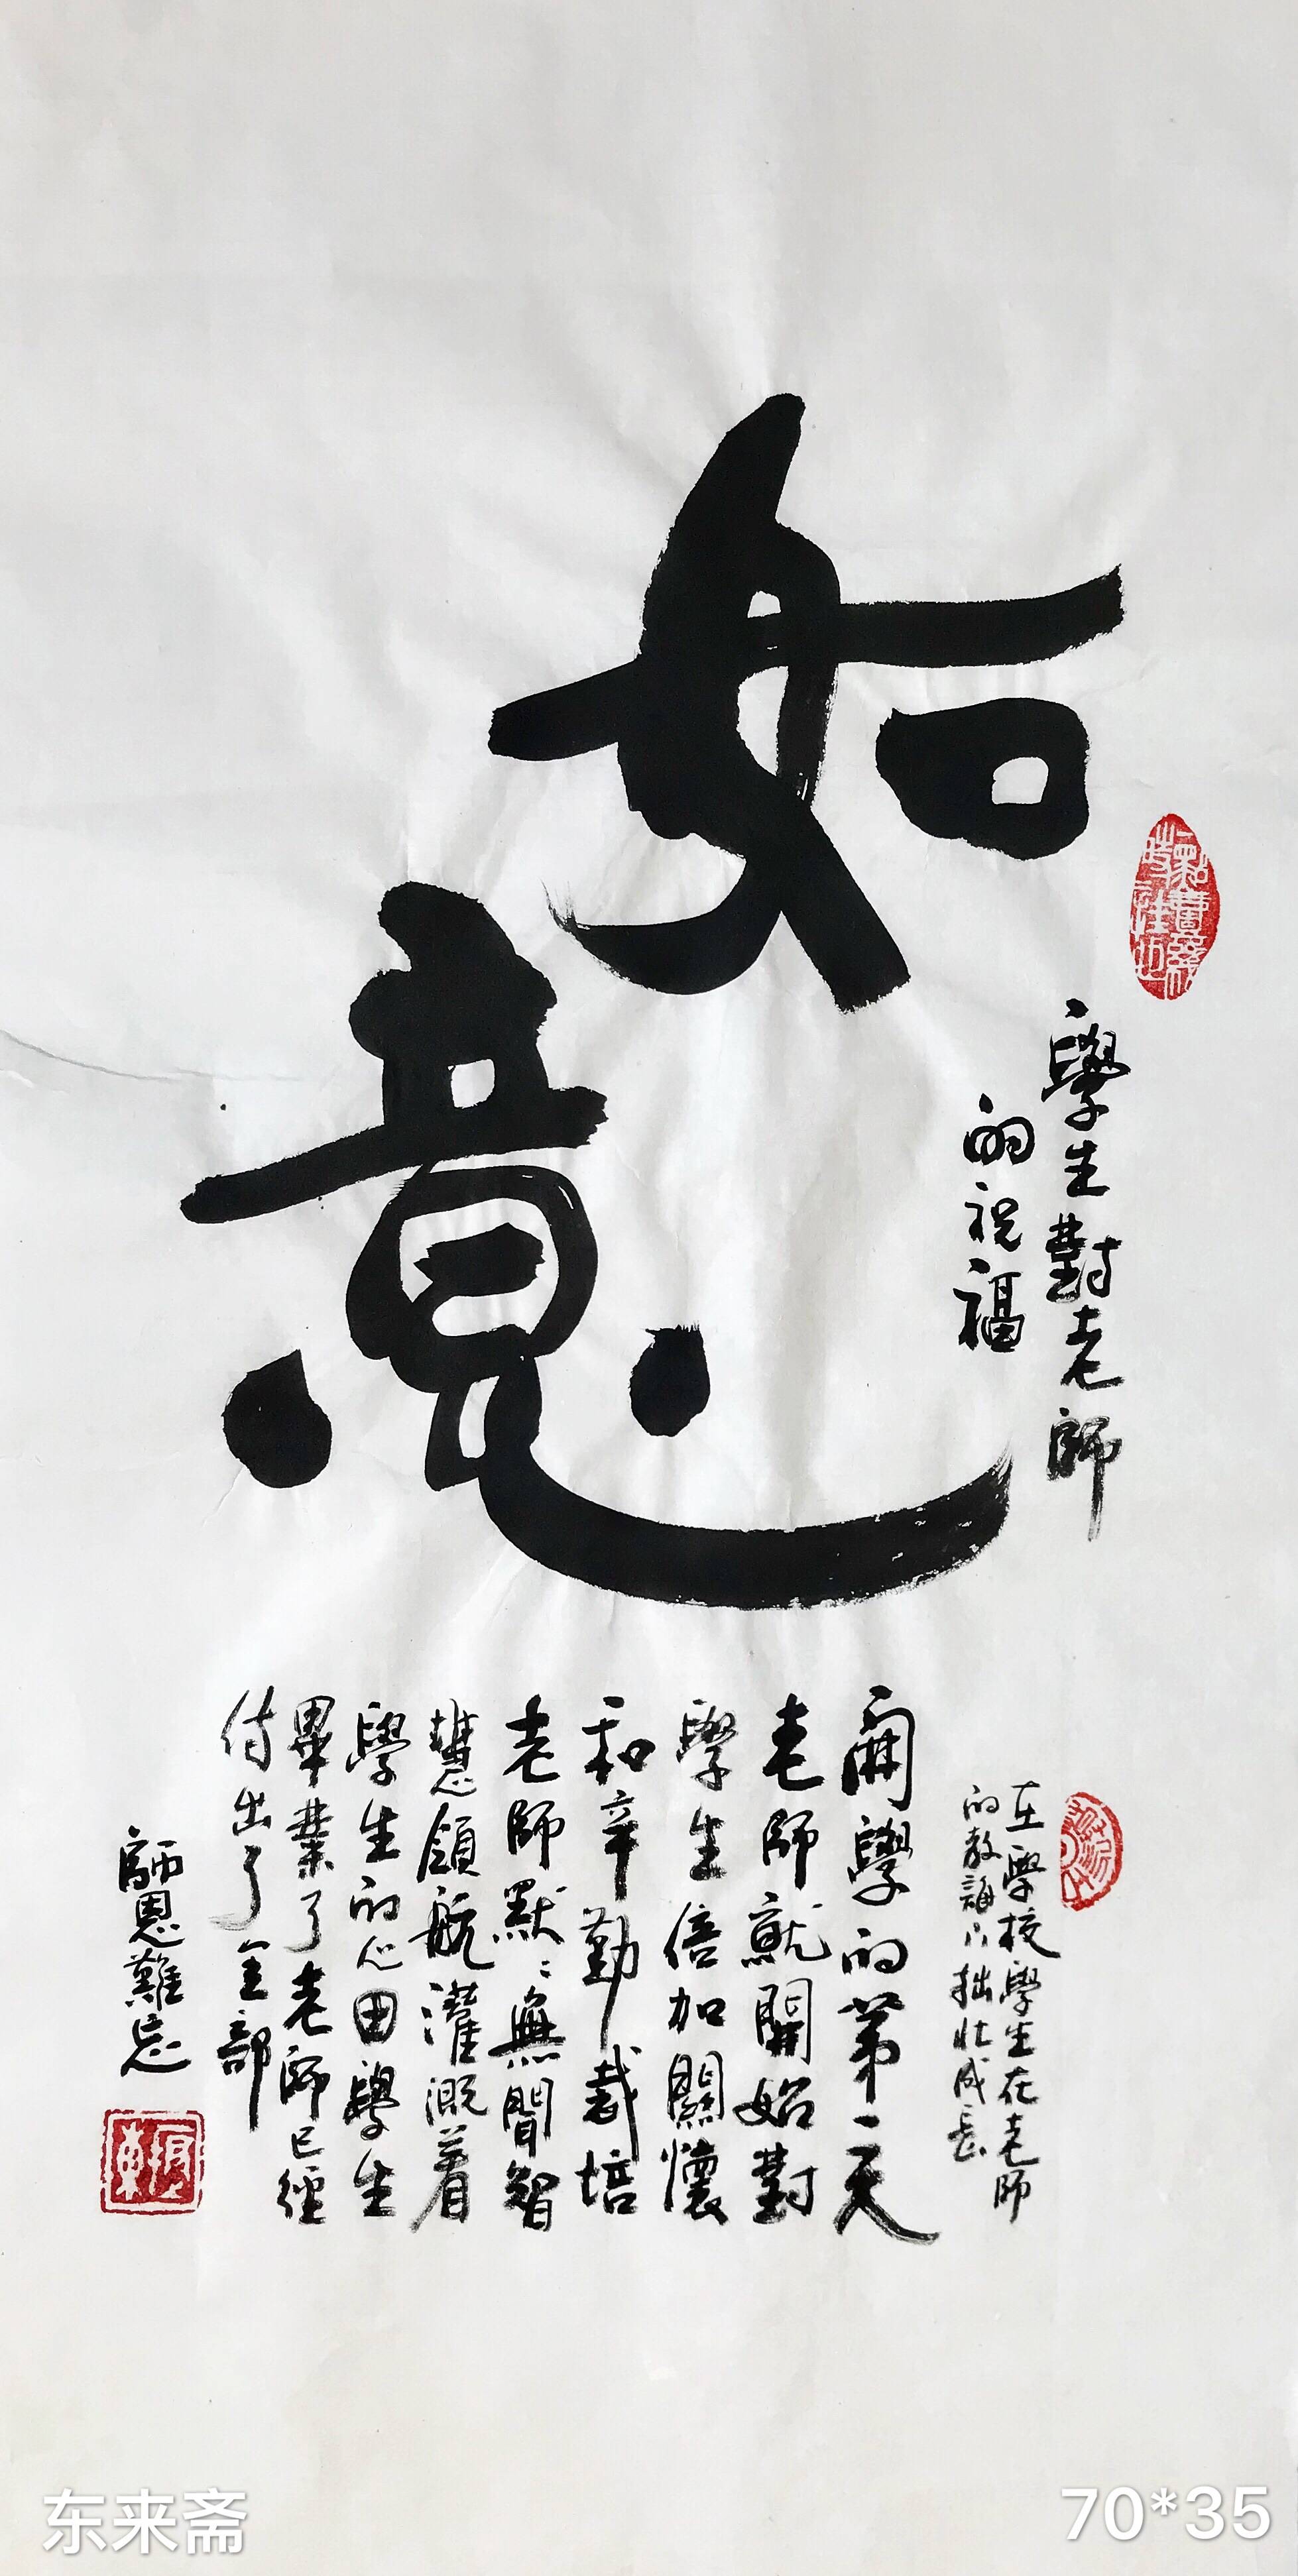 如
意
學生對老師
的祝福
在學校學生在老師
的教誨下拙壯成長
開學的第一天
老師就開始對
學生倍加關懷
和辛勤栽培
老師默默無聞智
慧領航灌溉着
學生的心田學生
畢業了老師已經
付出了全部
師恩難忘
东来斋
70*35